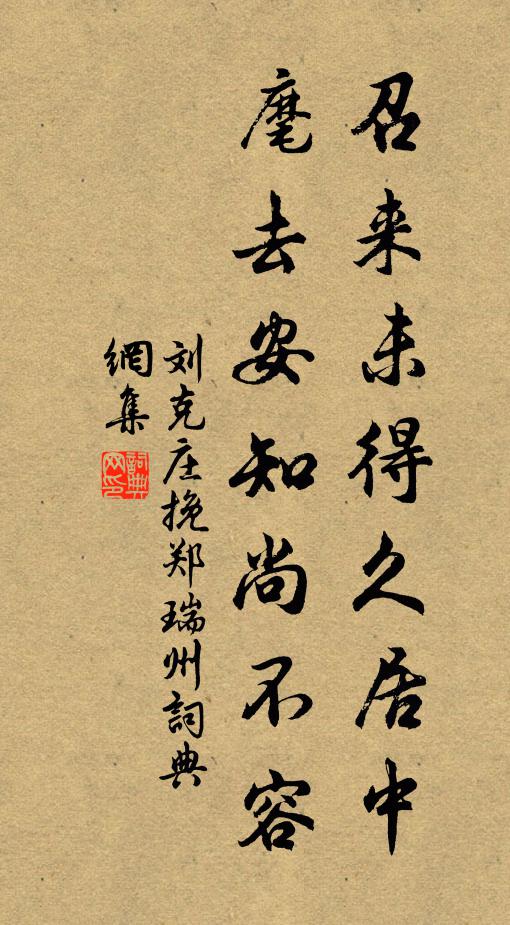 召来未得久居中
麾去安知尚不容
刘克庄挽郑瑞州詞典
網集
詞典网印